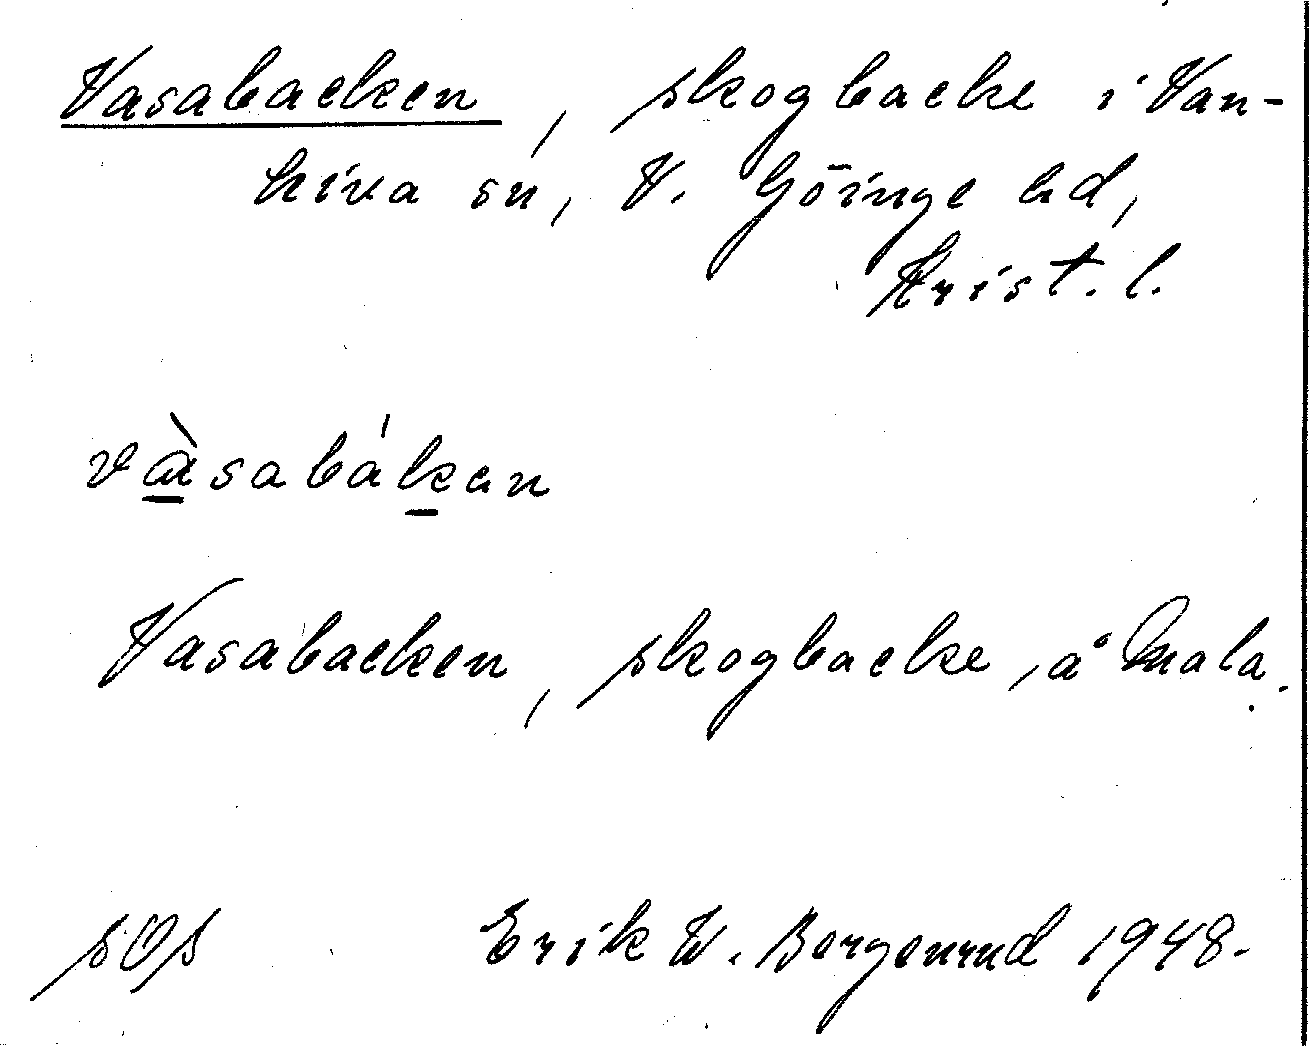 Vasabacken, skogbacke i Van-
kiva sn, V. Göinge hd,
Krist. l.
vàsabákan
Vasabacken, skogbacke, å Mala.
sOs Erik W. Borgenrud 1948.